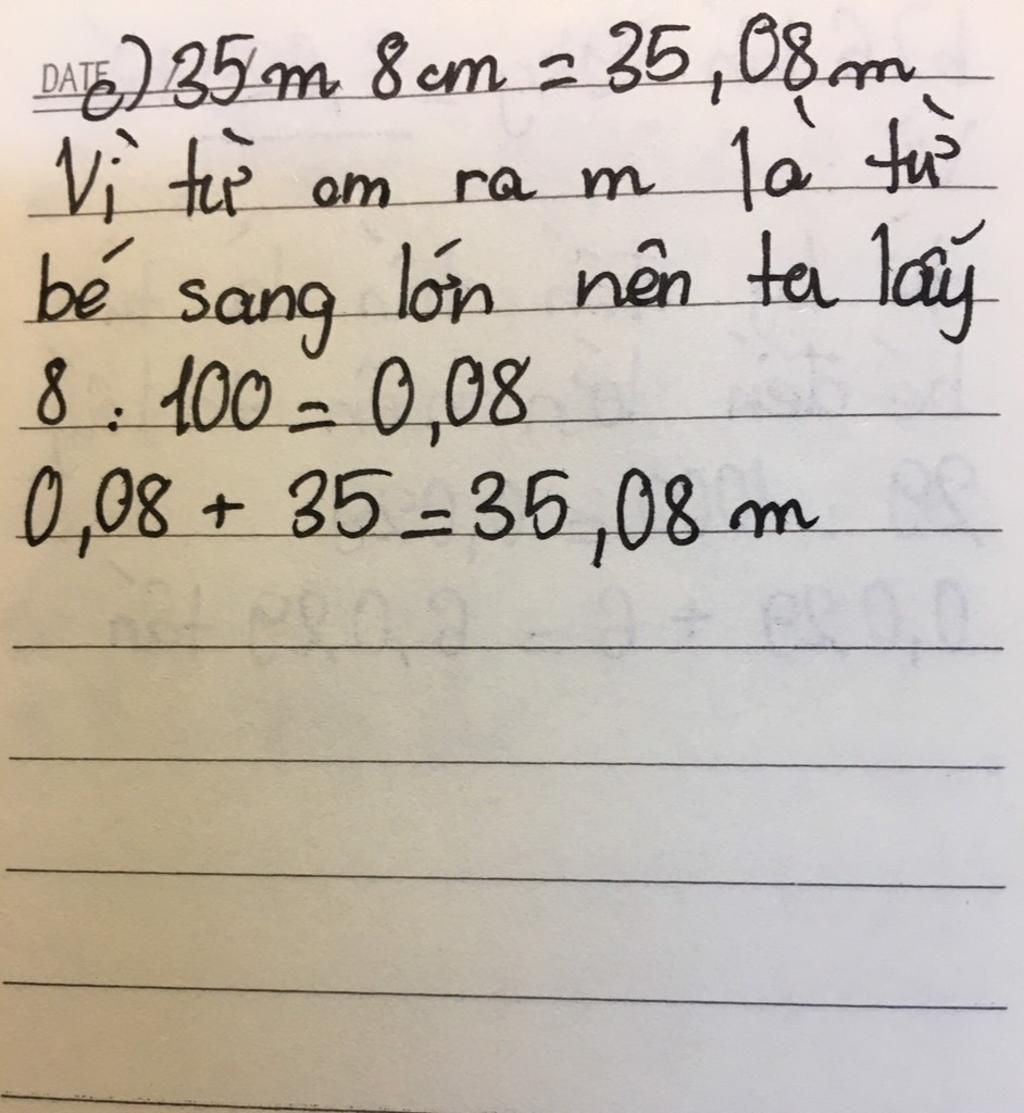 DATE
c) 35 m 8 cm = 35,08 m
Vì từ cm ra m là từ
bé sang lớn nên ta lấy
8 : 100 = 0,08
0,08 + 35 = 35,08 m